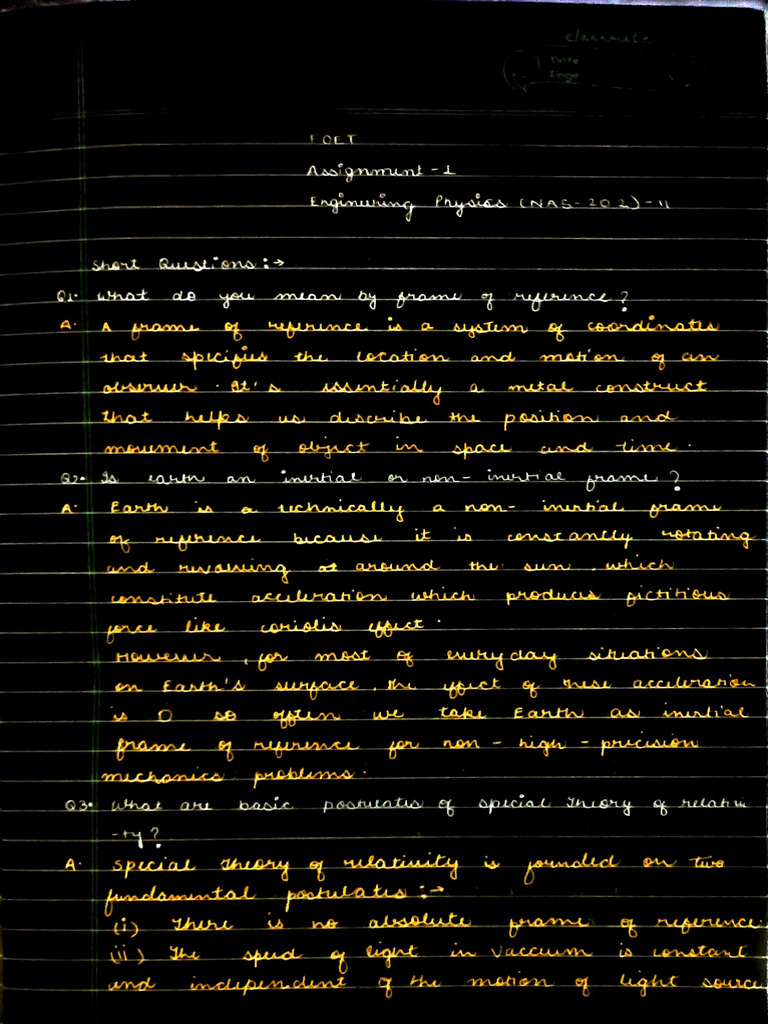 classmate
Date
Page
FOET
Assignment - 1
Engineering Physics (NAS-202) - II
Short Questions :→
Q1. What do you mean by frame of reference ?
A. A frame of reference is a system of coordinates
that specifies the location and motion of an
observer . It's essentially a metal construct
that helps us describe the position and
movement of object in space and time .
Q2. Is earth an inertial or non- inertial frame ?
A. Earth is a technically a non- inertial frame
of reference because it is constantly rotating
and revolving around the sun . which
constitute acceleration which produces fictitious
force like coriolis effect .
However , for most of everyday situations
on Earth's surface , the effect of these acceleration
is 0 so often we take Earth as inertial
frame of reference for non - high - precision
mechanics problems .
Q3. What are basic postulates of special theory of relativi
-ty ?
A. Special theory of relativity is founded on two
fundamental postulates :→
(i) There is no absolute frame of reference.
(ii) The speed of light in vaccum is constant
and independent of the motion of light source